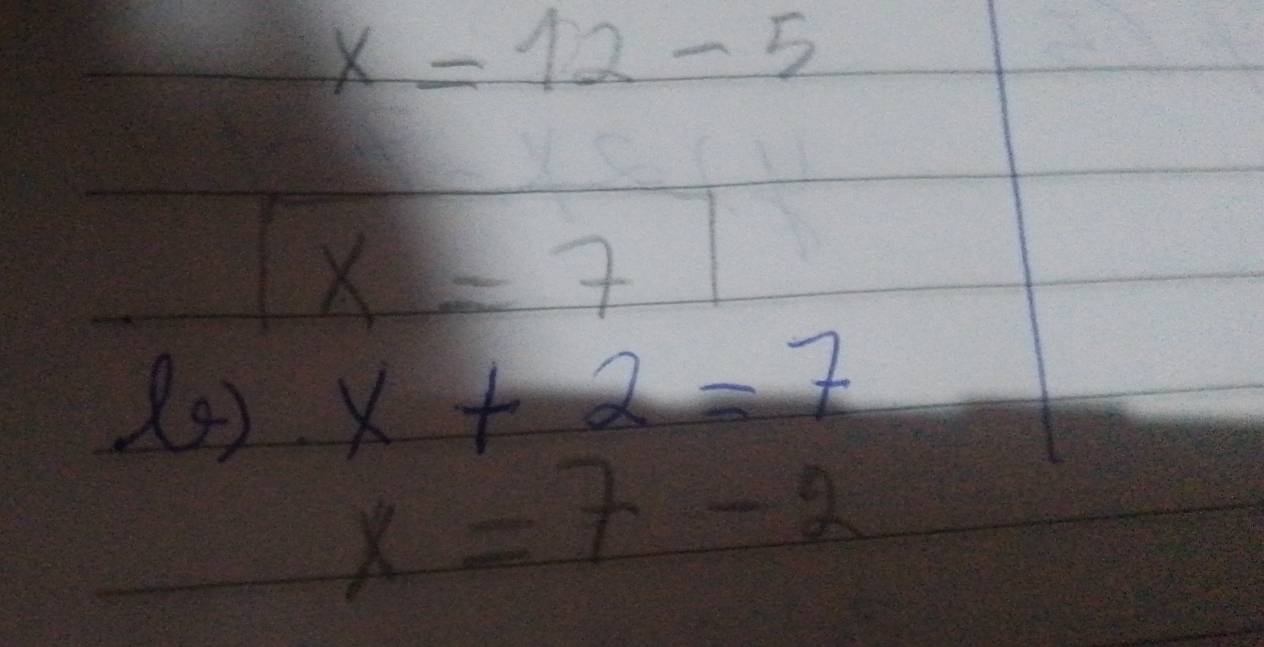 x = 12 - 5
x = 7
b) x + 2 = 7
x = 7 - 2